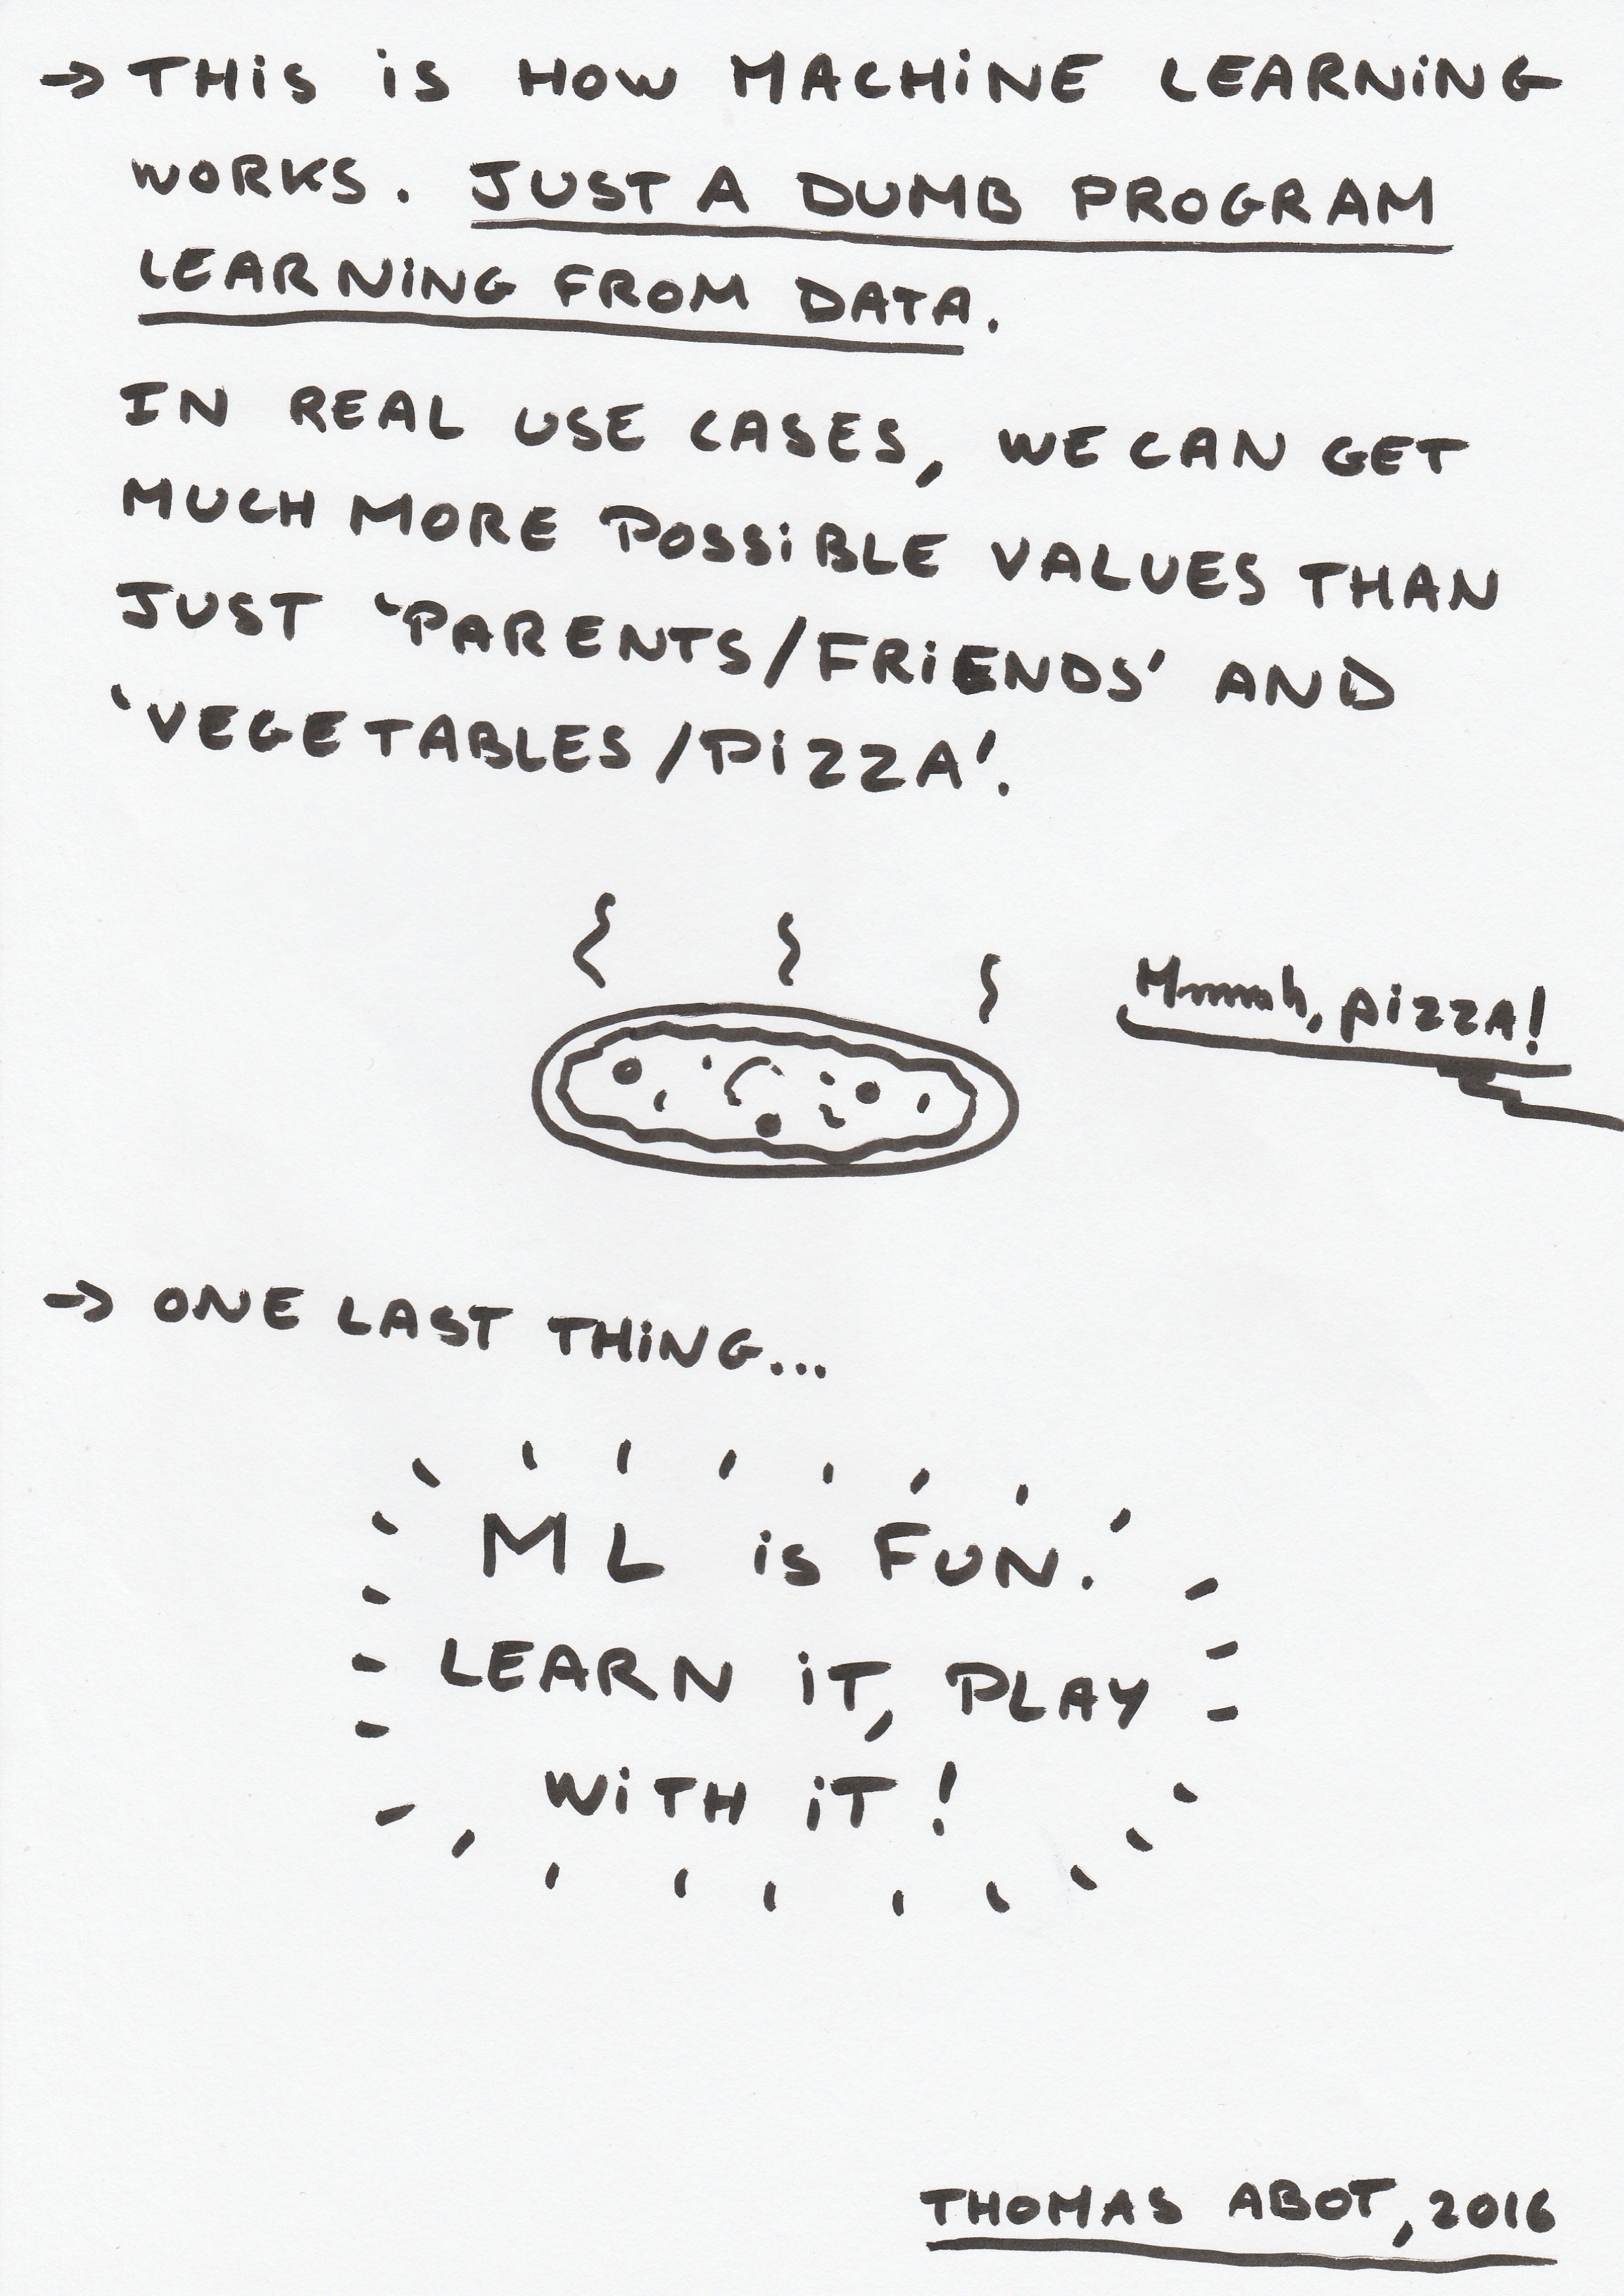 → THiS iS HOW MACHiNE LEARNiNG
WORKS. JUST A DUMB PROGRAM
LEARNiNG FROM DATA.
IN REAL USE CASES, WE CAN GET
MUCH MORE POSSiBLE VALUES THAN
JUST 'PARENTS/FRiENDS' AND
'VEGETABLES/PiZZA'.
Mmmmh, pizzA!
→ ONE LAST THiNG...
ML is FUN.
LEARN iT, PLAY
WiTH iT!
THOMAS ABOT, 2016